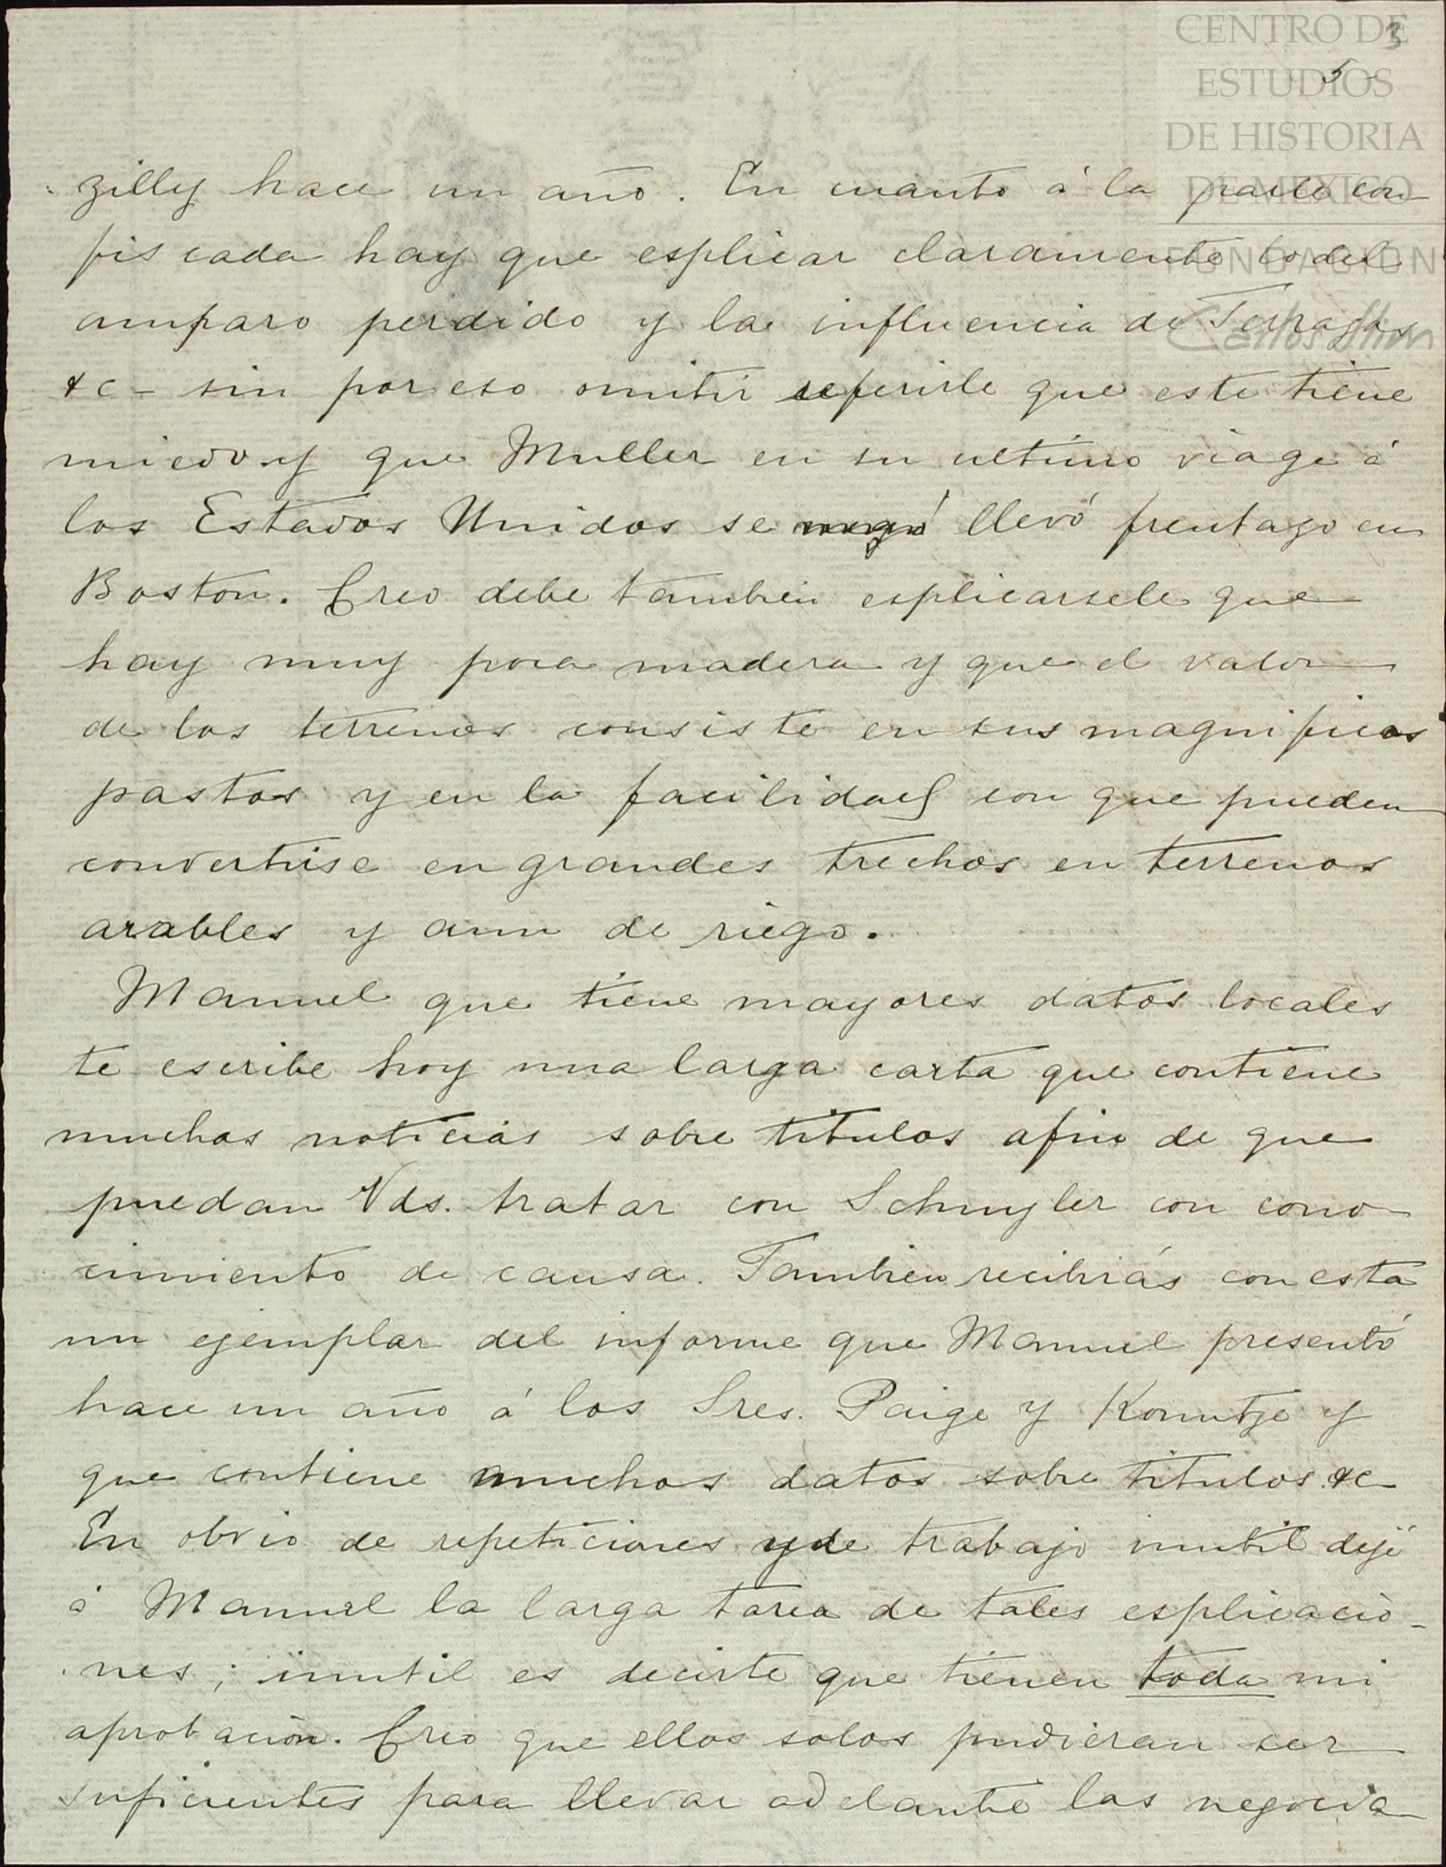 CENTRO DE
ESTUDIOS
DE HISTORIA
DE MEXICO
FUNDACIÓN
Carlos Slim
3
5 -
zilly hace un año. En cuanto á la parte con
fiscada hay que esplicar claramente lo del
amparo perdido y la influencia de Terrazas
&c - sin por eso omitir referirle que este tiene
miedo y que Muller en su ultimo viage á
los Estados Unidos se llevó frentazo en
Boston. Creo debe tambien esplicarsele que
hay muy poca madera y que el valor
de los terrenos consiste en sus magnificos
pastos y en la facilidad con que pueden
convertirse en grandes trechos en terrenos
arables y aun de riego.
Manuel que tiene mayores datos locales
te escribe hoy una larga carta que contiene
muchas noticias sobre titulos afin de que
puedan Vds. tratar con Schuyler con cono
cimiento de causa. Tambien recibirás con esta
un ejemplar del informe que Manuel presentó
hace un año á los Sres. Paige y Kountze y
que contiene muchos datos sobre titulos &c
En obvio de repeticiones y de trabajo inutil dejé
á Manuel la larga tarea de tales esplicacio-
nes; inutil es decirte que tienen toda mi
aprobación. Creo que ellos solos pudieran ser
suficientes para llevar adelante las negocia